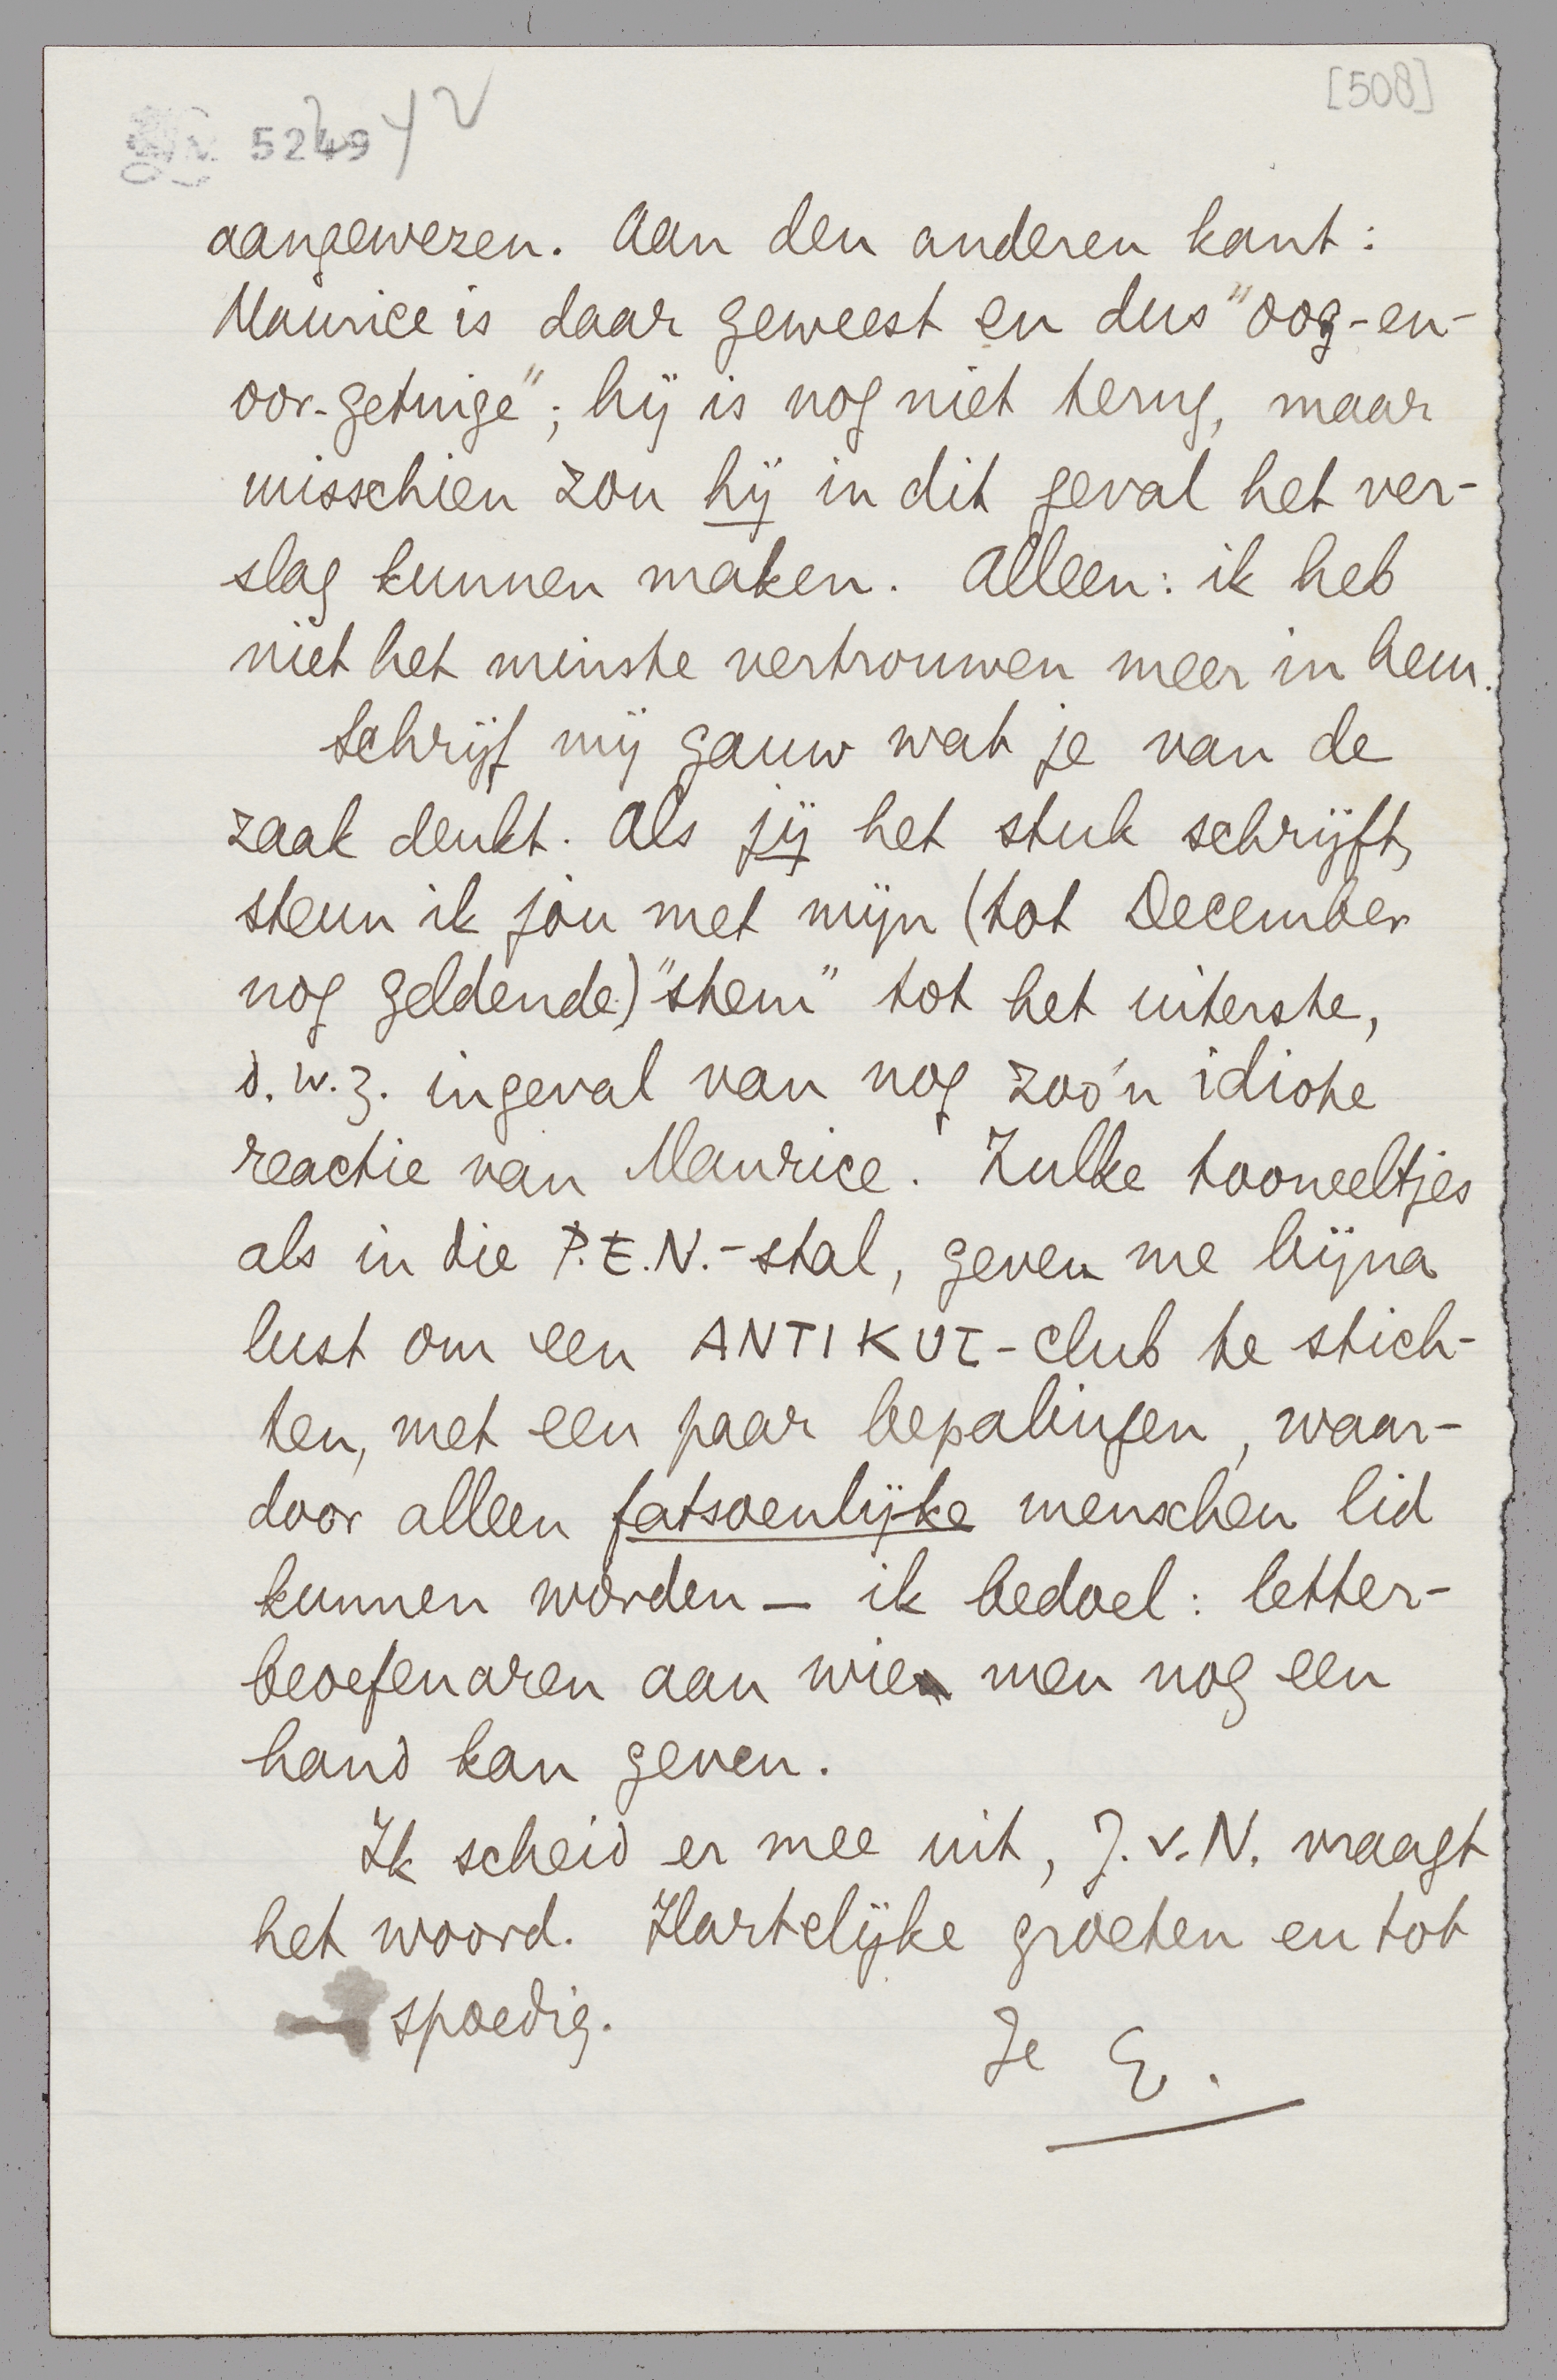 [508]
5249
aangewezen. Aan den anderen kant:
Maurice is daar geweest en dus "oog-en-
oor-getuige"; hij is nog niet terug, maar
misschien zou hij in dit geval het ver-
slag kunnen maken. Alleen: ik heb
niet het minste vertrouwen meer in hem.
Schrijf mij gauw wat je van de
zaak denkt. Als jij het stuk schrijft,
steun ik jou met mijn (tot December
nog geldende) "stem" tot het uiterste,
d.w.z. ingeval van nog zoo'n idiote
reactie van Maurice. Zulke tooneeltjes
als in die P.E.N.-stal, geven me bijna
lust om een ANTIKUL-club te stich-
ten, met een paar bepalingen, waar-
door alleen fatsoenlijke menschen lid
kunnen worden — ik bedoel: letter-
beoefenaren aan wie men nog een
hand kan geven.
Ik scheid er mee uit, J.v.N. vraagt
het woord. Hartelijke groeten en tot
spoedig.
Je E.